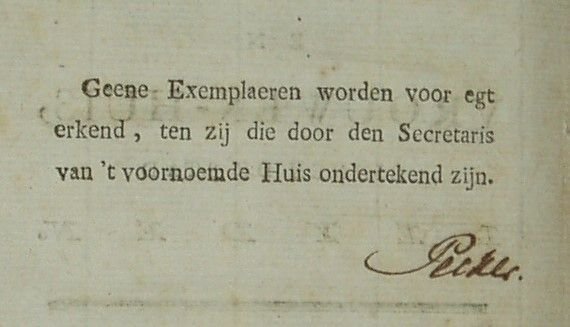 Geene Exemplaeren worden voor egt
erkend, ten zij die door den Secretaris
van 't voornoemde Huis ondertekend zijn.